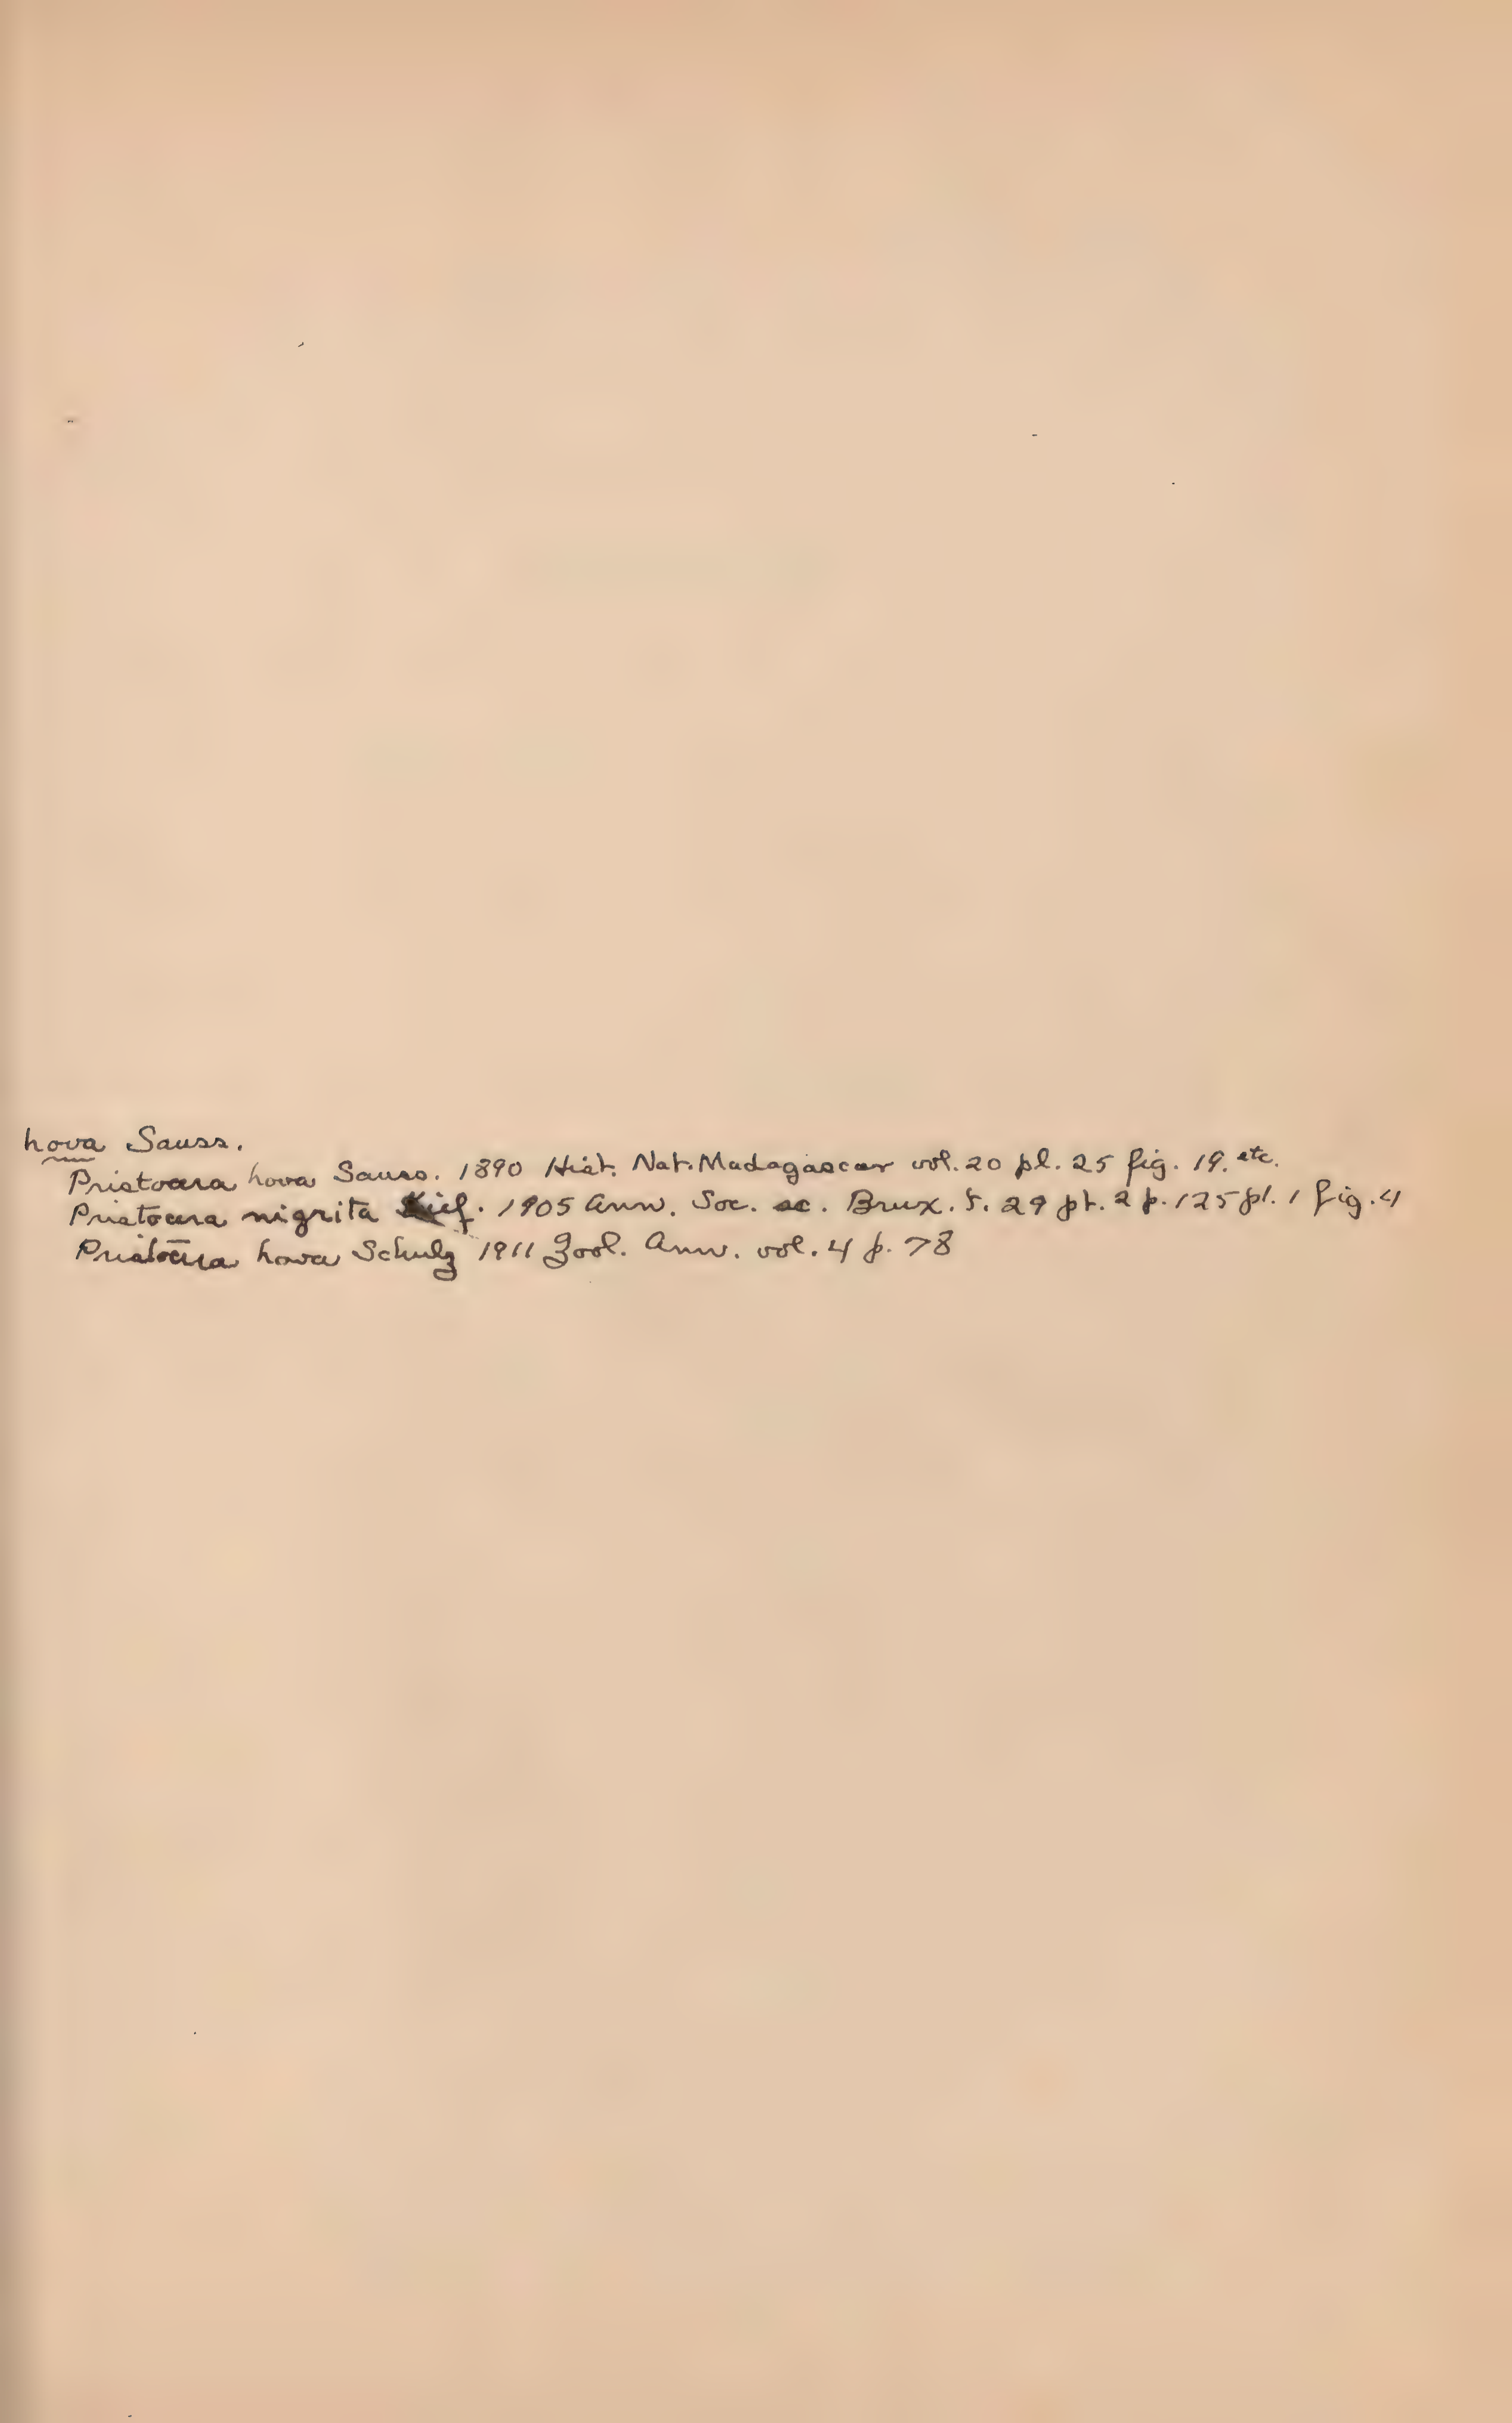 hova Sauss.
Pristocera hova Sauss. 1890 Hist. Nat. Madagascar vol. 20 pl. 25 fig. 19. etc.
Pristocera nigrita Kief. 1905 Ann. Soc. sc. Brux. t. 29 pt. 2 p. 125 pl. 1 fig. 4
Pristocera hova Schulz 1911 Zool. Ann. vol. 4 p. 78